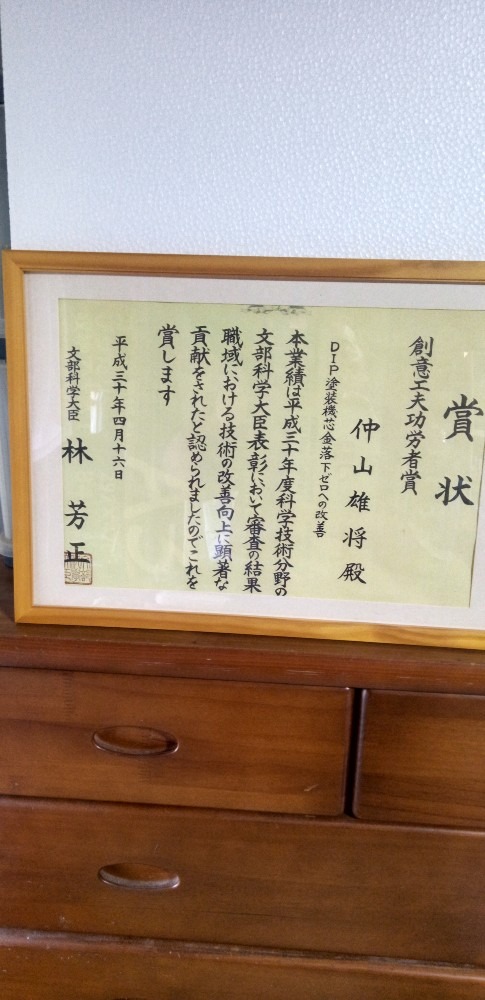 賞状
創意工夫功労者賞
仲山雄将殿
DIP塗装機芯金落下ゼロへの改善
本業績は平成三十年度科学技術分野の
文部科学大臣表彰において審査の結果
職域における技術の改善向上に顕著な
貢献をされたと認められましたのでこれを
賞します
平成三十年四月十六日
文部科学大臣 林芳正